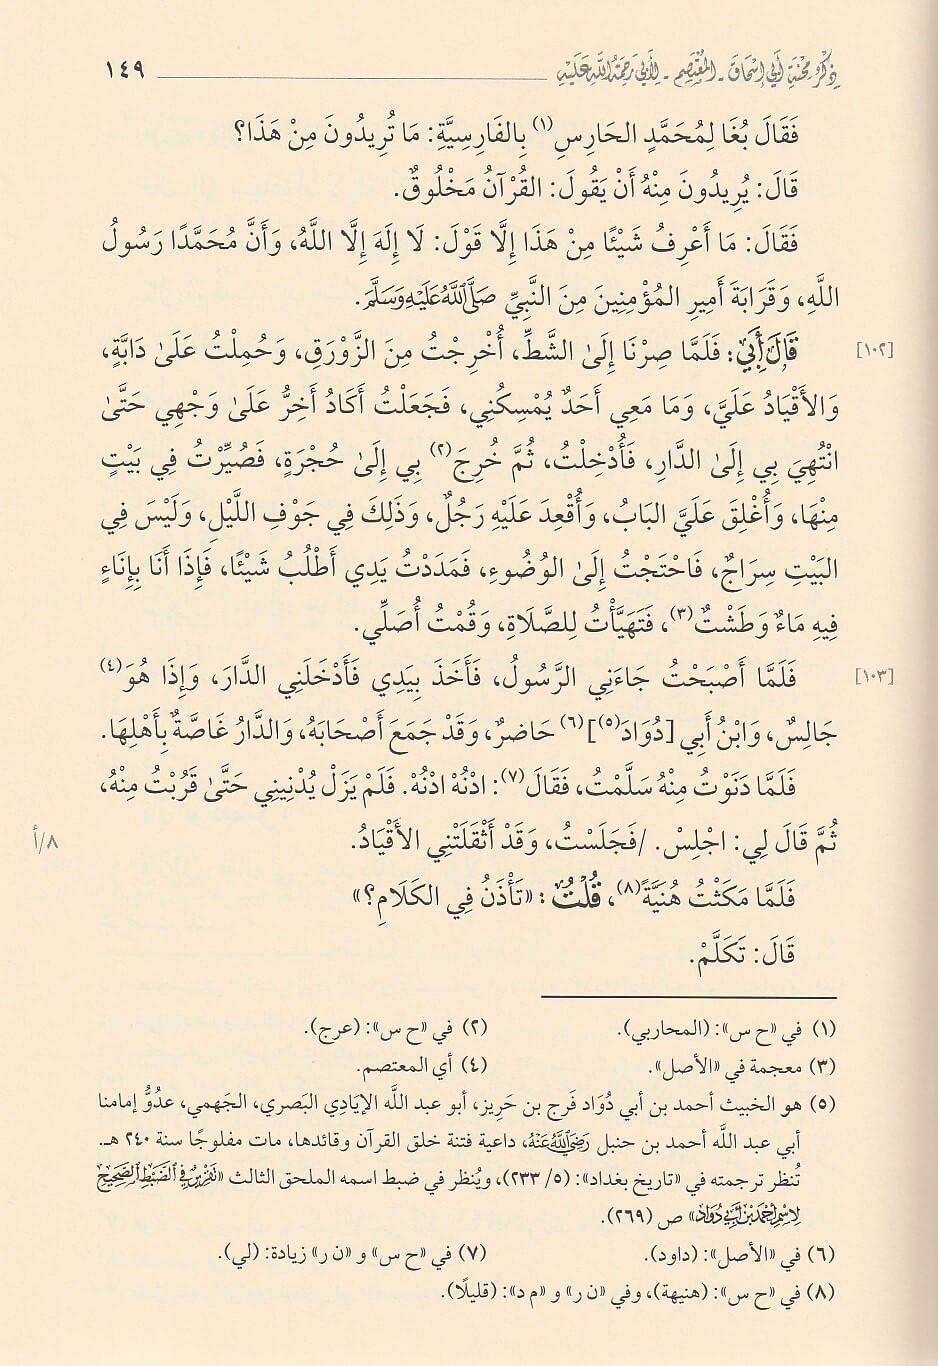 ذِكْرُ مِحْنَةِ أَبِي إِسْحَاقَ - المُعْتَصِمِ - لِأَبِي رَحْمَةُ اللَّهِ عَلَيْهِ ١٤٩
فَقَالَ بُغَا لِمُحَمَّدٍ الحَارِسِ(١) بِالفَارِسِيَّةِ: مَا تُرِيدُونَ مِنْ هَذَا؟
قَالَ: يُرِيدُونَ مِنْهُ أَنْ يَقُولَ: القُرْآنُ مَخْلُوقٌ.
فَقَالَ: مَا أَعْرِفُ شَيْئًا مِنْ هَذَا إِلَّا قَوْلَ: لَا إِلَهَ إِلَّا اللَّهُ، وَأَنَّ مُحَمَّدًا رَسُولُ
اللَّهِ، وَقَرَابَةَ أَمِيرِ المُؤْمِنِينَ مِنَ النَّبِيِّ صَلَّى اللَّهُ عَلَيْهِ وَسَلَّمَ.
[١٠٢] قَالَ أَبِي: فَلَمَّا صِرْنَا إِلَىٰ الشَّطِّ، أُخْرِجْتُ مِنَ الزَّوْرَقِ، وَحُمِلْتُ عَلَىٰ دَابَّةٍ،
وَالأَقْيَادُ عَلَيَّ، وَمَا مَعِي أَحَدٌ يُمْسِكُنِي، فَجَعَلْتُ أَكَادُ أَخِرُّ عَلَىٰ وَجْهِي حَتَّىٰ
انْتُهِيَ بِي إِلَىٰ الدَّارِ، فَأُدْخِلْتُ، ثُمَّ خُرِجَ(٢) بِي إِلَىٰ حُجْرَةٍ، فَصُيِّرْتُ فِي بَيْتٍ
مِنْهَا، وَأُغْلِقَ عَلَيَّ البَابُ، وَأُقْعِدَ عَلَيْهِ رَجُلٌ، وَذَلِكَ فِي جَوْفِ اللَّيْلِ، وَلَيْسَ فِي
البَيْتِ سِرَاجٌ، فَاحْتَجْتُ إِلَىٰ الوُضُوءِ، فَمَدَدْتُ يَدِي أَطْلُبُ شَيْئًا، فَإِذَا أَنَا بِإِنَاءٍ
فِيهِ مَاءٌ وَطَشْتٌ(٣)، فَتَهَيَّأْتُ لِلصَّلَاةِ، وَقُمْتُ أُصَلِّي.
[١٠٣] فَلَمَّا أَصْبَحْتُ جَاءَنِي الرَّسُولُ، فَأَخَذَ بِيَدِي فَأَدْخَلَنِي الدَّارَ، وَإِذَا هُوَ(٤)
جَالِسٌ، وَابْنُ أَبِي [دُوَادَ(٥)](٦) حَاضرٌ، وَقَدْ جَمَعَ أَصْحَابَهُ، وَالدَّارُ غَاصَّةٌ بِأَهْلِهَا.
فَلَمَّا دَنَوْتُ مِنْهُ سَلَّمْتُ، فَقَالَ(٧): ادْنُهْ ادْنُهْ. فَلَمْ يَزَلْ يُدْنِينِي حَتَّىٰ قَرُبْتُ مِنْهُ،
ثُمَّ قَالَ لِي: اجْلِسْ. /فَجَلَسْتُ، وَقَدْ أَثْقَلَتْنِي الأَقْيَادُ. ٨/أ
فَلَمَّا مَكَثْتُ هُنَيَّةً(٨)، قُلْتُ: «تَأْذَنُ فِي الكَلَامِ؟»
قَالَ: تَكَلَّمْ.
(١) في «ح س»: (المحاربي). (٢) في «ح س»: (عرج).
(٣) معجمة في «الأصل». (٤) أي المعتصم.
(٥) هو الخبيث أحمد بن أبي دُوَاد فَرج بن حَرِيز، أبو عبد اللَّه الإيَادِي البَصري، الجَهمي، عدُوُّ إمامنا
أبي عبد اللَّه أحمد بن حنبل رَضِيَ اللَّهُ عَنْهُ، داعية فتنة خلق القرآن وقائدها، مات مفلوجًا سنة ٢٤٠ هـ.
تُنظر ترجمته في «تاريخ بغداد»: (٥/ ٢٣٣)، ويُنظر في ضبط اسمه الملحق الثالث «تَقْرِيرٌ فِي الضَّبْطِ الصَّحِيحِ
لِاسْمِ أَحْمَدَ بْنِ أَبِي دُوَادَ» ص (٢٦٩).
(٦) في «الأصل»: (داود). (٧) في «ح س» و «ن ر» زيادة: (لي).
(٨) في «ح س»: (هنيهة)، وفي «ن ر» و «م د»: (قليلًا).